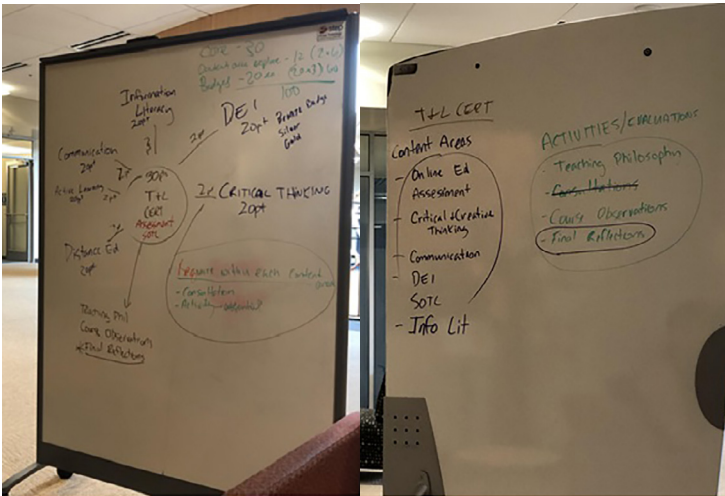 Core - 80
Badges - 20
100
Information
Literacy
20pt
DEI
20pt
Bronze Badge
Silver
Gold
Communication
20pt
2pt
2pt
Active Learning
2pt
T+L
CERT
Assessment
SOTL
CRITICAL THINKING
20pt
Distance Ed
20pt
within each content
- Consultation
- Activity
Teaching Phil
Course Observations
Final Reflections
T+L CERT
Content Areas
- Online Ed
Assessment
- Critical + Creative
Thinking
- Communication
- DEI
SOTL
- Info Lit
ACTIVITIES/EVALUATIONS
- Teaching Philosophy
- Consultations
- Course Observations
- Final Reflections